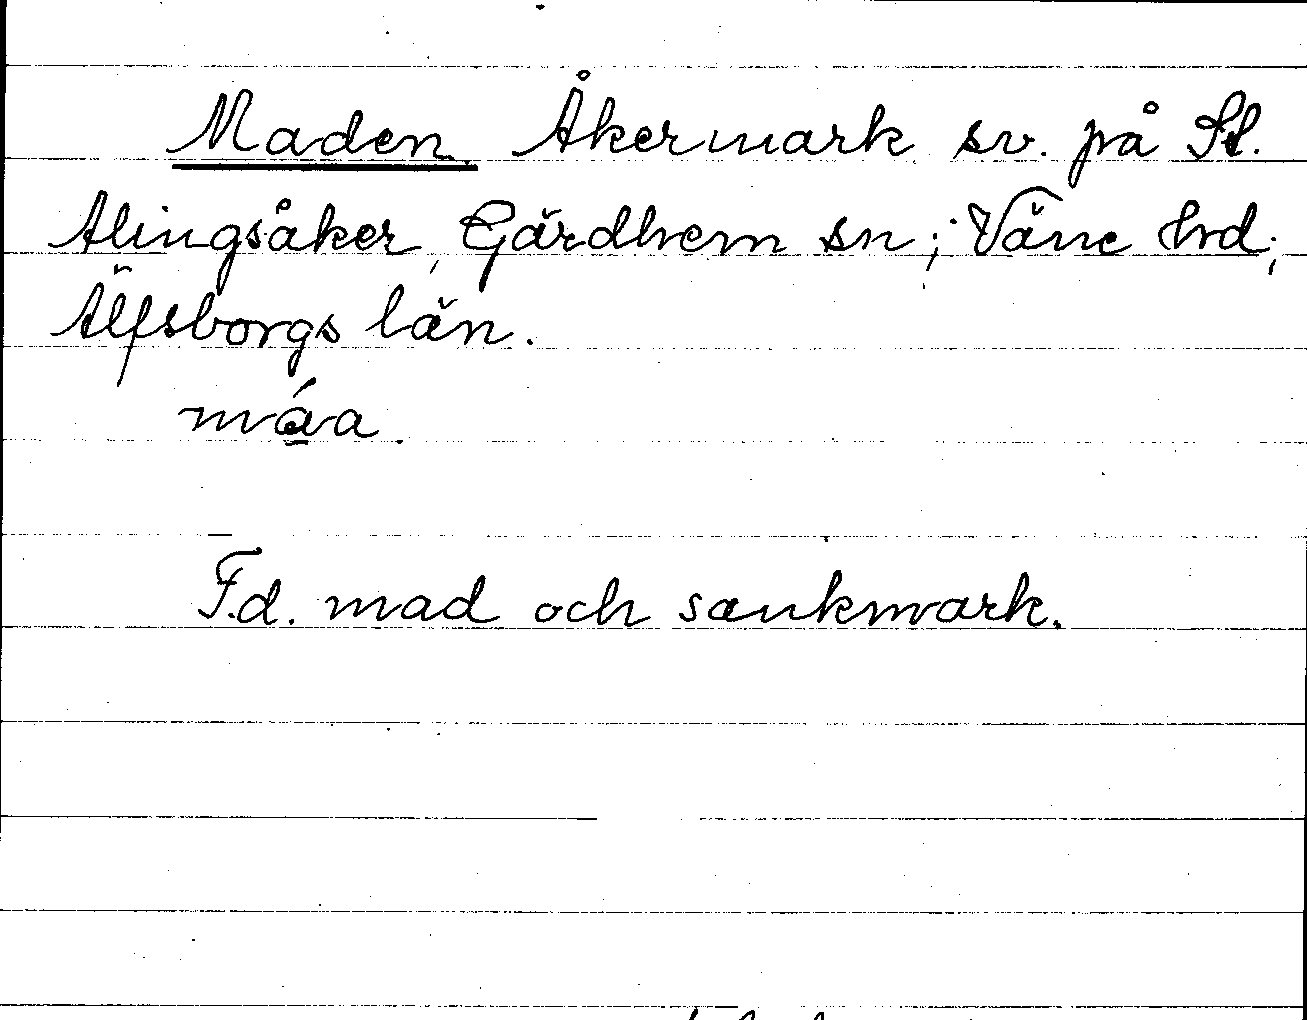 Maden. Åkermark sv. på St.
Alingsåker, Gärdhem sn; Väne hd;
Älfsborgs län.
máa.
F.d. mad och sankmark.